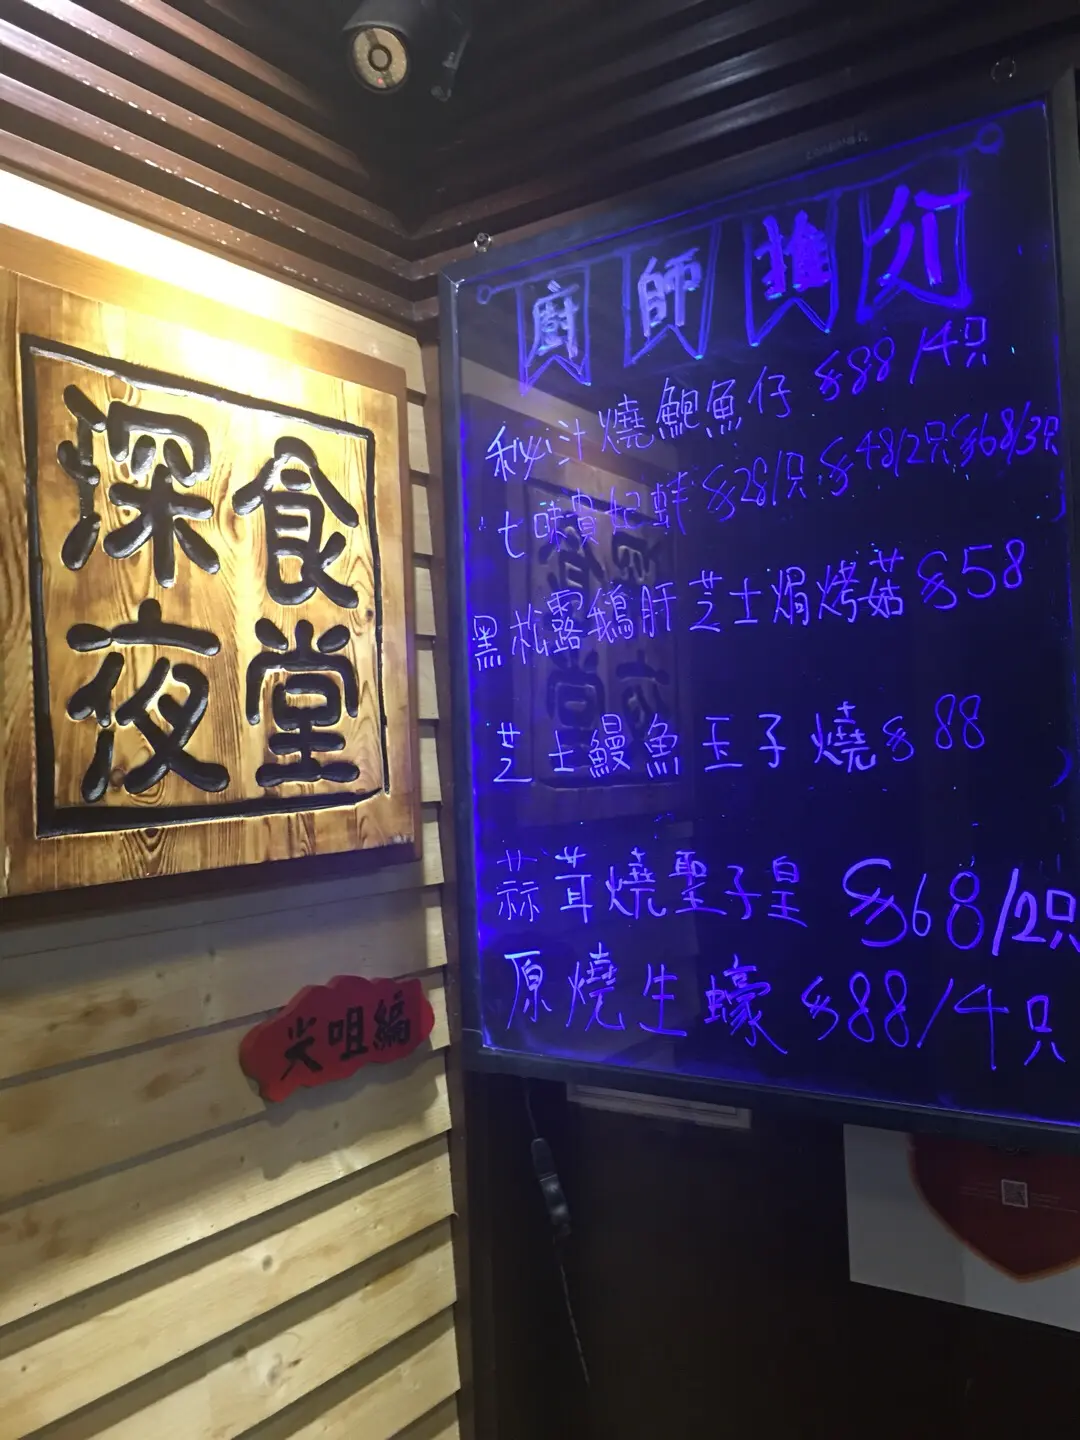 深夜
食堂
尖咀編
廚師推介
秘汁燒鮑魚仔 $88/4只
七味貴妃蚌 $28/只 $48/2只 $68/3只
黑松露鵝肝芝士焗烤菇 $58
芝士鰻魚玉子燒 $88
蒜茸燒聖子皇 $68/2只
原燒生蠔 $88/4只